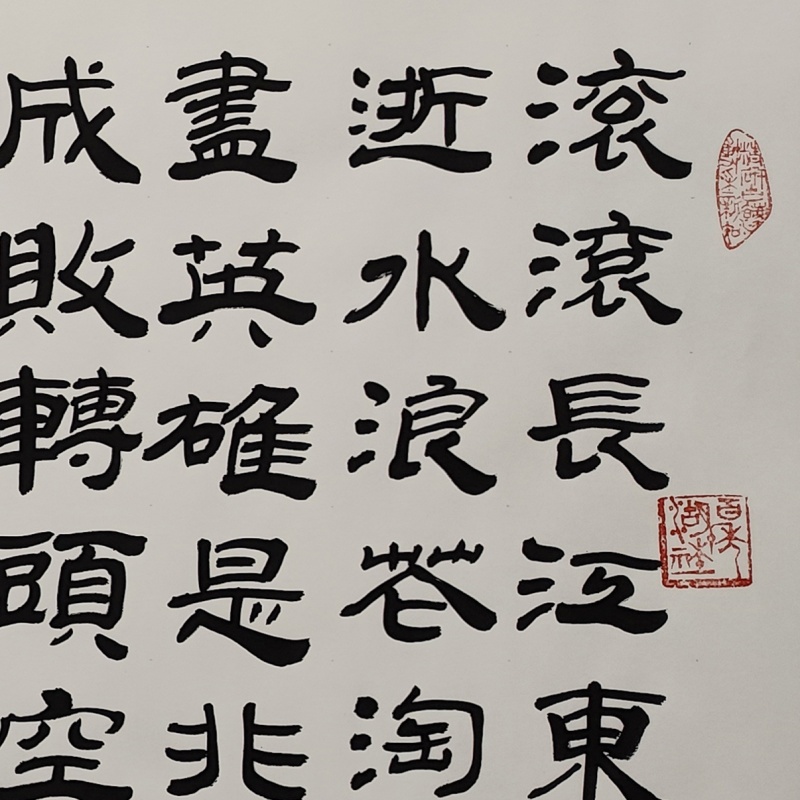 滾滾長江東
逝水浪花淘
盡英雄是非
成敗轉頭空